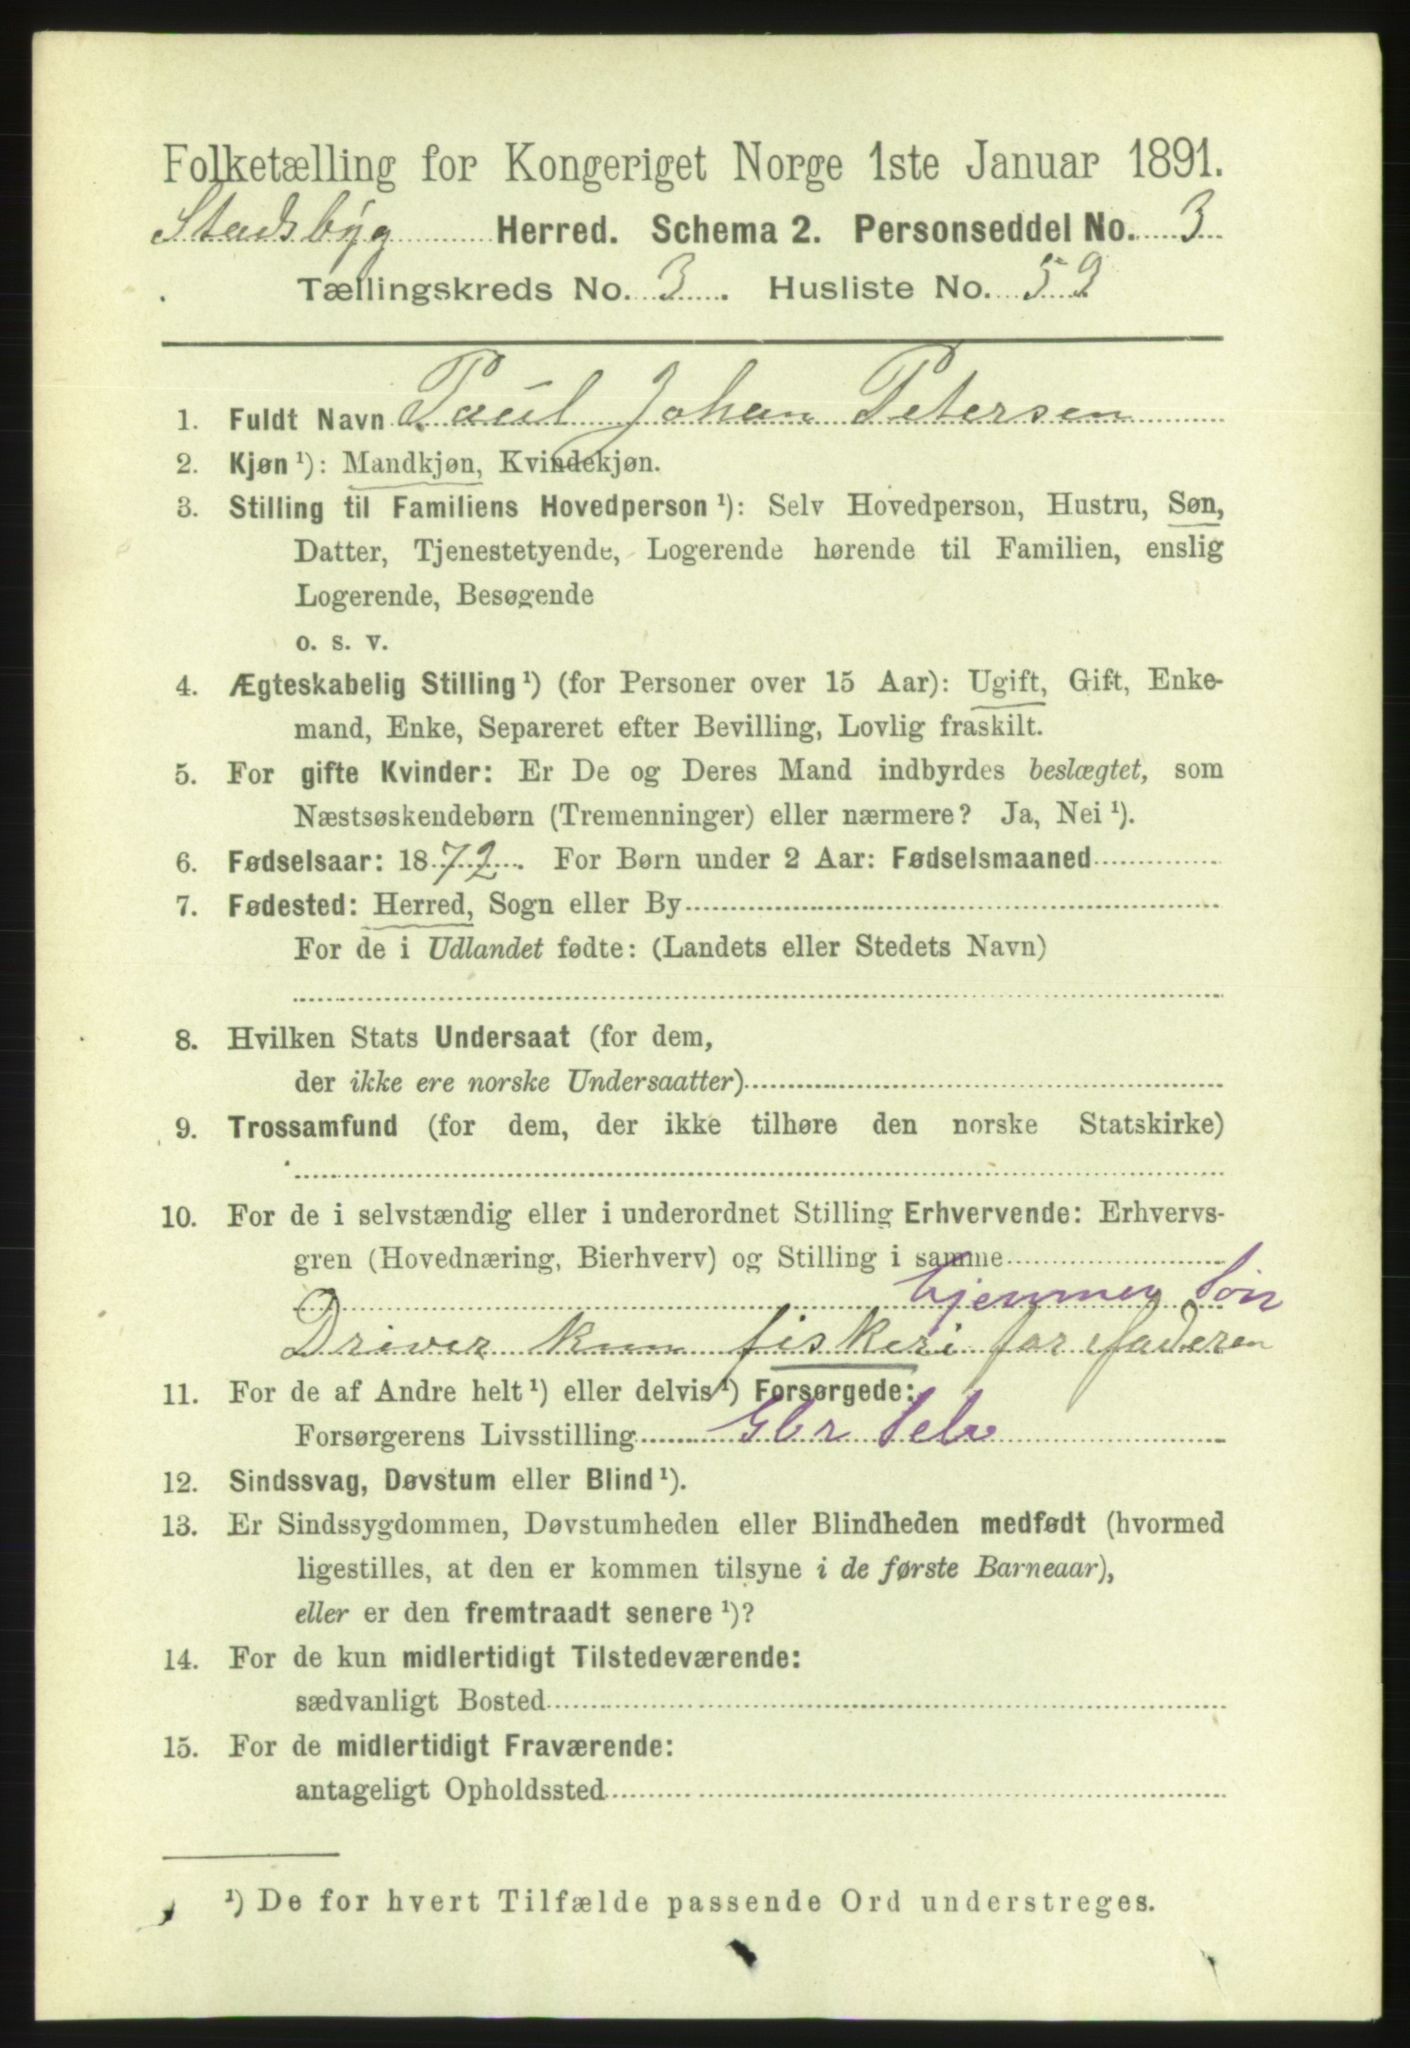 Folketælling for Kongeriget Norge 1ste Januar 1891.
Stadsbyg Herred. Schema 2. Personseddel No. 3
Tællingskreds No. 3. Husliste No. 52
1. Fuldt Navn Paul Johan Petersen
2. Kjøn ¹): Mandkjøn, Kvindekjøn.
3. Stilling til Familiens Hovedperson ¹): Selv Hovedperson, Hustru, Søn,
Datter, Tjenestetyende, Logerende hørende til Familien, enslig
Logerende, Besøgende
o. s. v.
4. Ægteskabelig Stilling ¹) (for Personer over 15 Aar): Ugift, Gift, Enke-
mand, Enke, Separeret efter Bevilling, Lovlig fraskilt.
5. For gifte Kvinder: Er De og Deres Mand indbyrdes beslægtet, som
Næstsøskendebørn (Tremenninger) eller nærmere? Ja, Nei ¹).
6. Fødselsaar: 1872. For Børn under 2 Aar: Fødselsmaaned
7. Fødested: Herred, Sogn eller By
For de i Udlandet fødte: (Landets eller Stedets Navn)
8. Hvilken Stats Undersaat (for dem,
der ikke ere norske Undersaatter)
9. Trossamfund (for dem, der ikke tilhøre den norske Statskirke)
10. For de i selvstændig eller i underordnet Stilling Erhvervende: Erhvervs-
gren (Hovednæring, Bierhverv) og Stilling i samme
hjemmev Søn
Driver kun fiskeri for faderen
11. For de af Andre helt ¹) eller delvis ¹) Forsørgede:
Forsørgerens Livsstilling Gbr Selv
12. Sindssvag, Døvstum eller Blind ¹).
13. Er Sindssygdommen, Døvstumheden eller Blindheden medfødt (hvormed
ligestilles, at den er kommen tilsyne i de første Barneaar),
eller er den fremtraadt senere ¹)?
14. For de kun midlertidigt Tilstedeværende:
sædvanligt Bosted
15. For de midlertidigt Fraværende:
antageligt Opholdssted
¹) De for hvert Tilfælde passende Ord understreges.